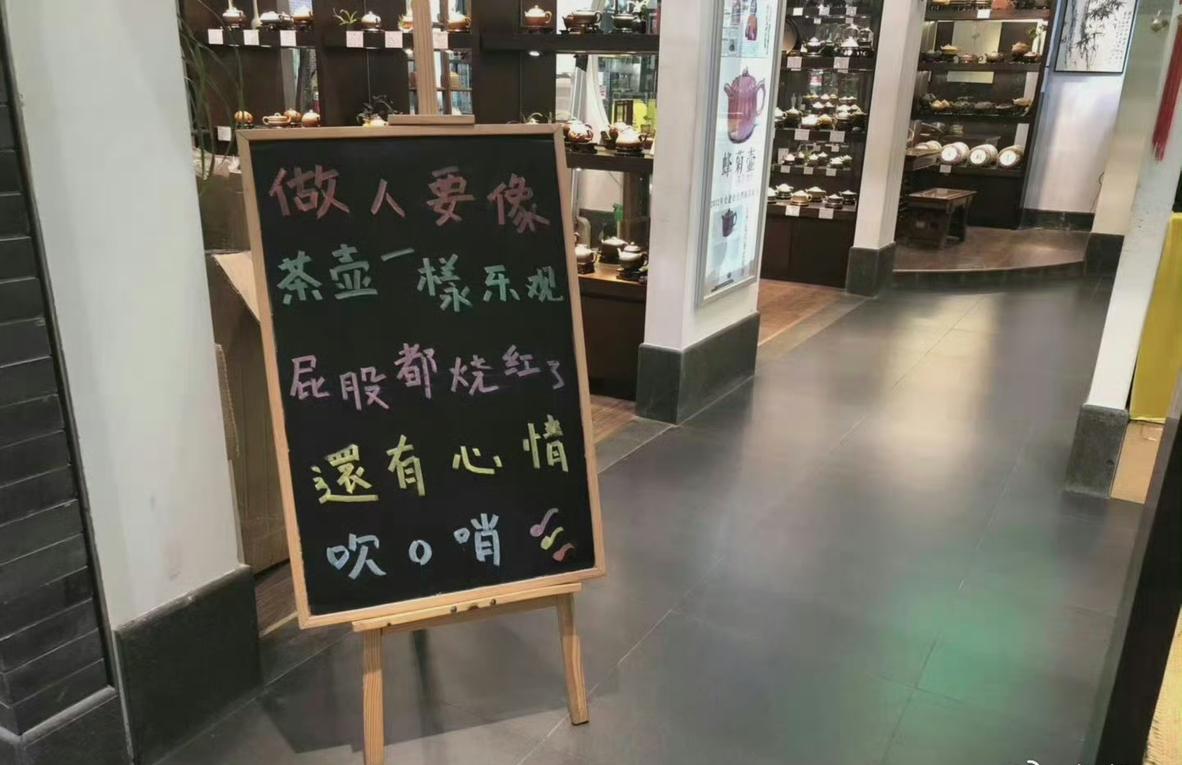 做人要像
茶壶一樣乐观
屁股都烧红了
還有心情
吹o哨